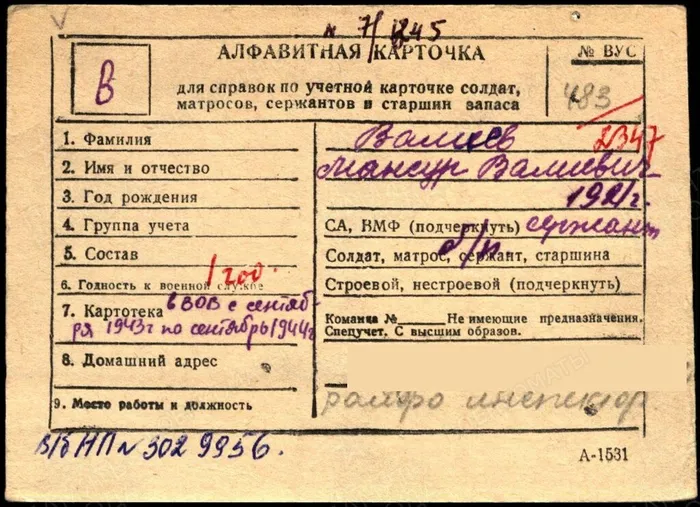 к 7/1245
АЛФАВИТНАЯ КАРТОЧКА
№ ВУС
В
для справок по учетной карточке солдат,
матросов, сержантов и старшин запаса
483
2347
1. Фамилия
Валиев
2. Имя и отчество
Мансур Валиевич
3. Год рождения
1921г.
4. Группа учета
СА, ВМФ (подчеркнуть) сержант
5. Состав
Солдат, матрос, сержант, старшина
б/п
6. Годность к военной службе
1 200.
Строевой, нестроевой (подчеркнуть)
7. Картотека в ВОВ с сентяб-
ря 1943г по сентябрь 1944г
Команда № Не имеющие предназначения.
Спецучет. С высшим образов.
8. Домашний адрес
9. Место работы и должность
райфо инспектор
в/б НП № 302 9956.
А-1531